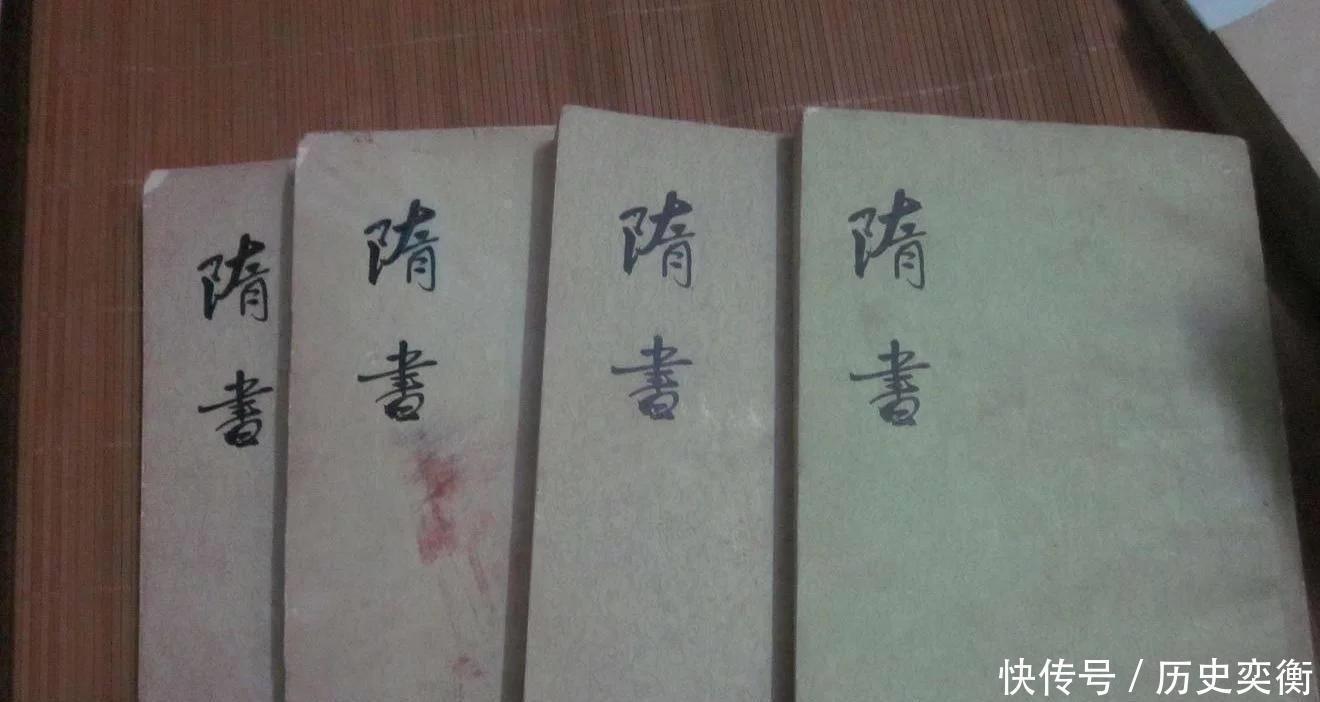 隋書
隋書
隋書
隋書
快传号/历史奕衡